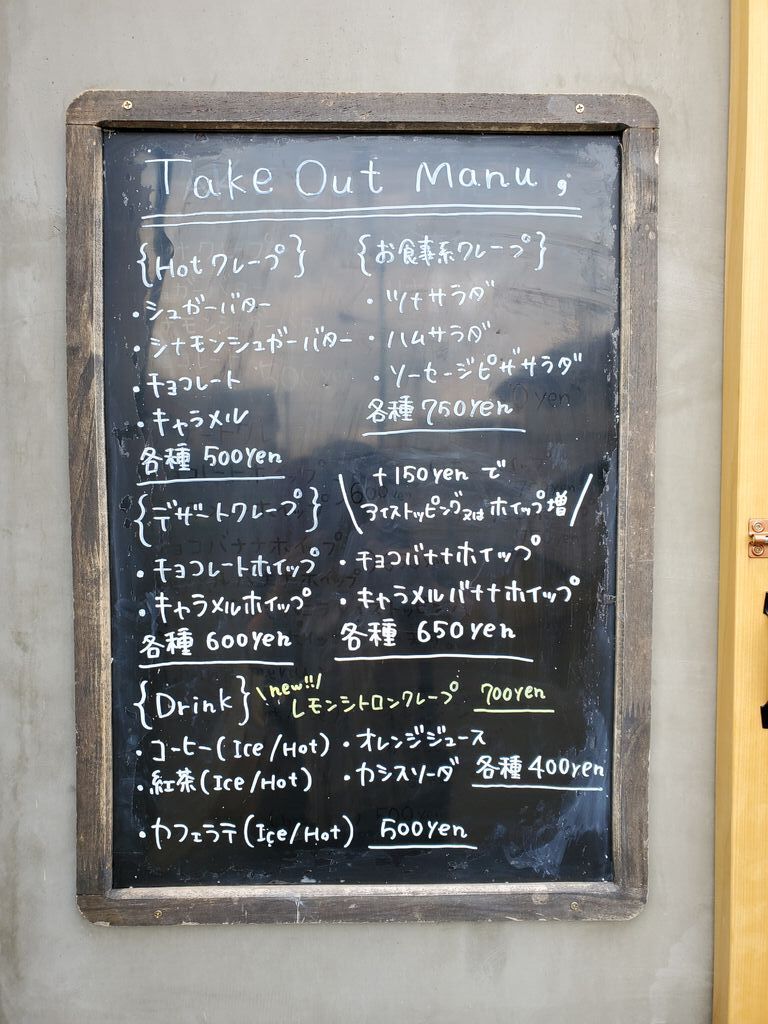 Take Out Manu,
{Hotクレープ}
・シュガーバター
・シナモンシュガーバター
・チョコレート
・キャラメル
各種 500yen
{お食事系クレープ}
・ツナサラダ
・ハムサラダ
・ソーセージピザサラダ
各種 750yen
{デザートクレープ}
\ +150yen で
アイストッピング又はホイップ増/
・チョコレートホイップ
・キャラメルホイップ
各種 600yen
・チョコバナナホイップ
・キャラメルバナナホイップ
各種 650yen
\new!!/
レモンシトロンクレープ 700yen
{Drink}
・コーヒー(Ice/Hot)
・紅茶(Ice/Hot)
・オレンジジュース
・カシスソーダ 各種400yen
・カフェラテ(Ice/Hot) 500yen